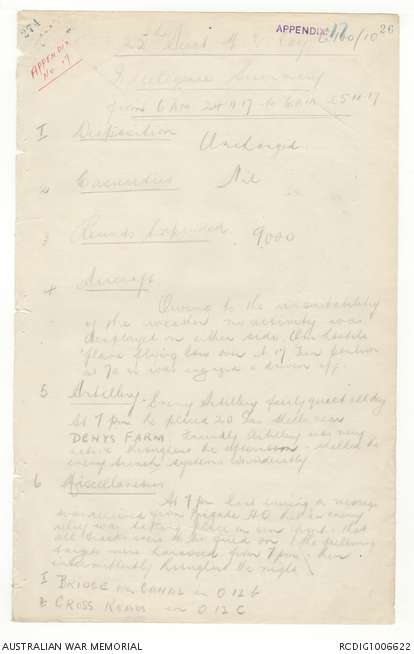 274
APPENDIX 17
26
APPENDIX
No 17
25th M G Coy G 160/10
Intelligence Summary
from 6 AM 24.11.17 to 6 AM 25.11.17
I Disposition
Unchanged
2 Casualties
Nil
3 Rounds Expended
9000
4 Aircraft
Owing to the unsuitability
of the weather no activity was
displayed on either side. One hostile
plane flying low over of our position
at 7 a m was engaged & driven off.
5 Artillery - Enemy Artillery fairly quiet all day
At 7 pm he placed 20 Gas shells near
DENYS FARM. Friendly Artillery was very
active throughout the afternoon & shelled the
enemy trench systems considerably
6 Miscellaneous
At 7 pm last evening a message
was received from Brigade HQ that an enemy
relief was taking place on our front & that
all were to be fired on. The following
targets were harassed from 7 pm & then
intermittently throughout the night
I BRIDGE on CANAL in O 12 b
2 CROSS ROADS in O 12 C
AUSTRALIAN WAR MEMORIAL
RCDIG1006622